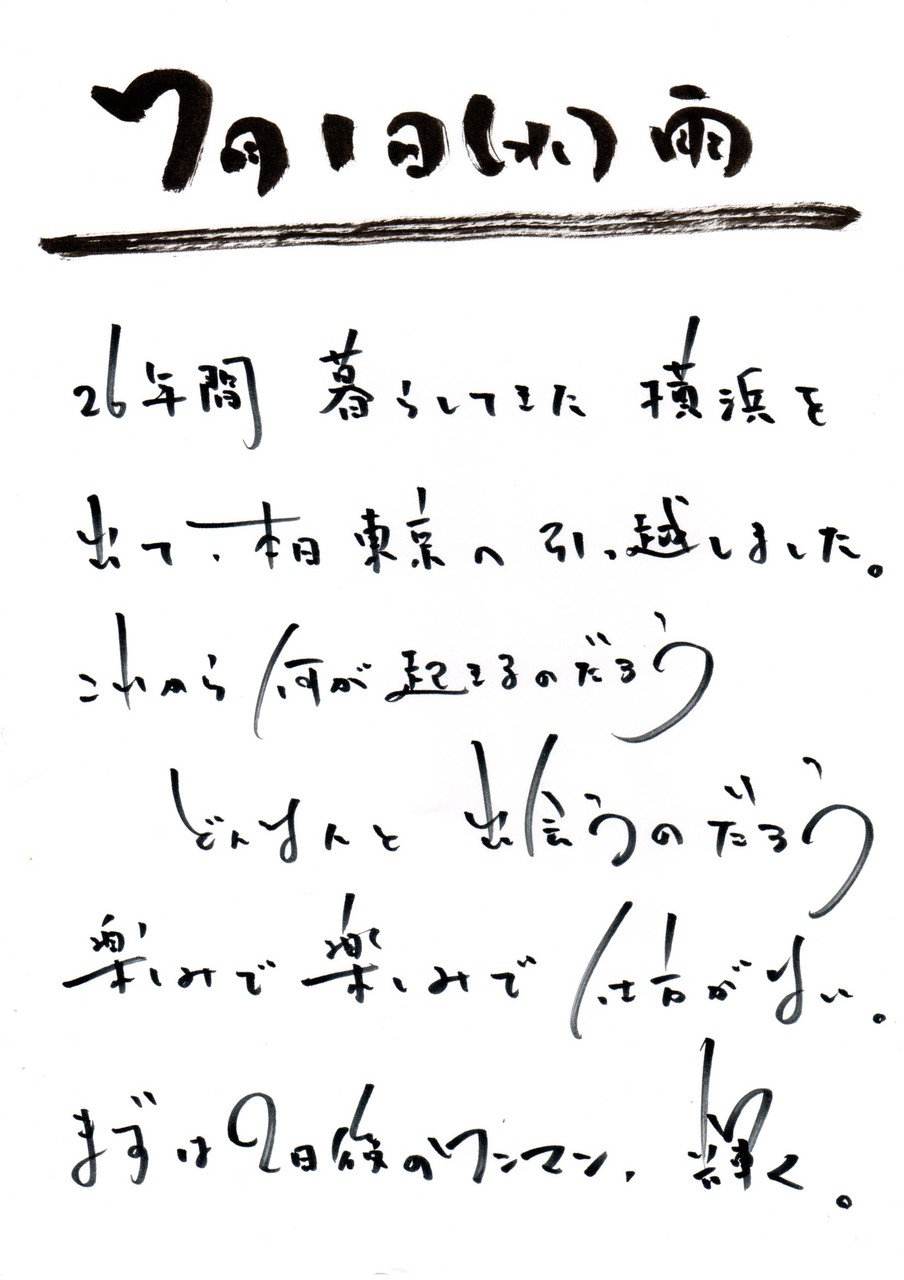 7月1日(水) 雨
26年間 暮らしてきた 横浜を
出て、本日 東京へ 引っ越しました。
これから 何が 起きるのだろう
どんな人と 出会うのだろう
楽しみで 楽しみで 仕方がない。
まずは 2日後のワンマン、輝く。